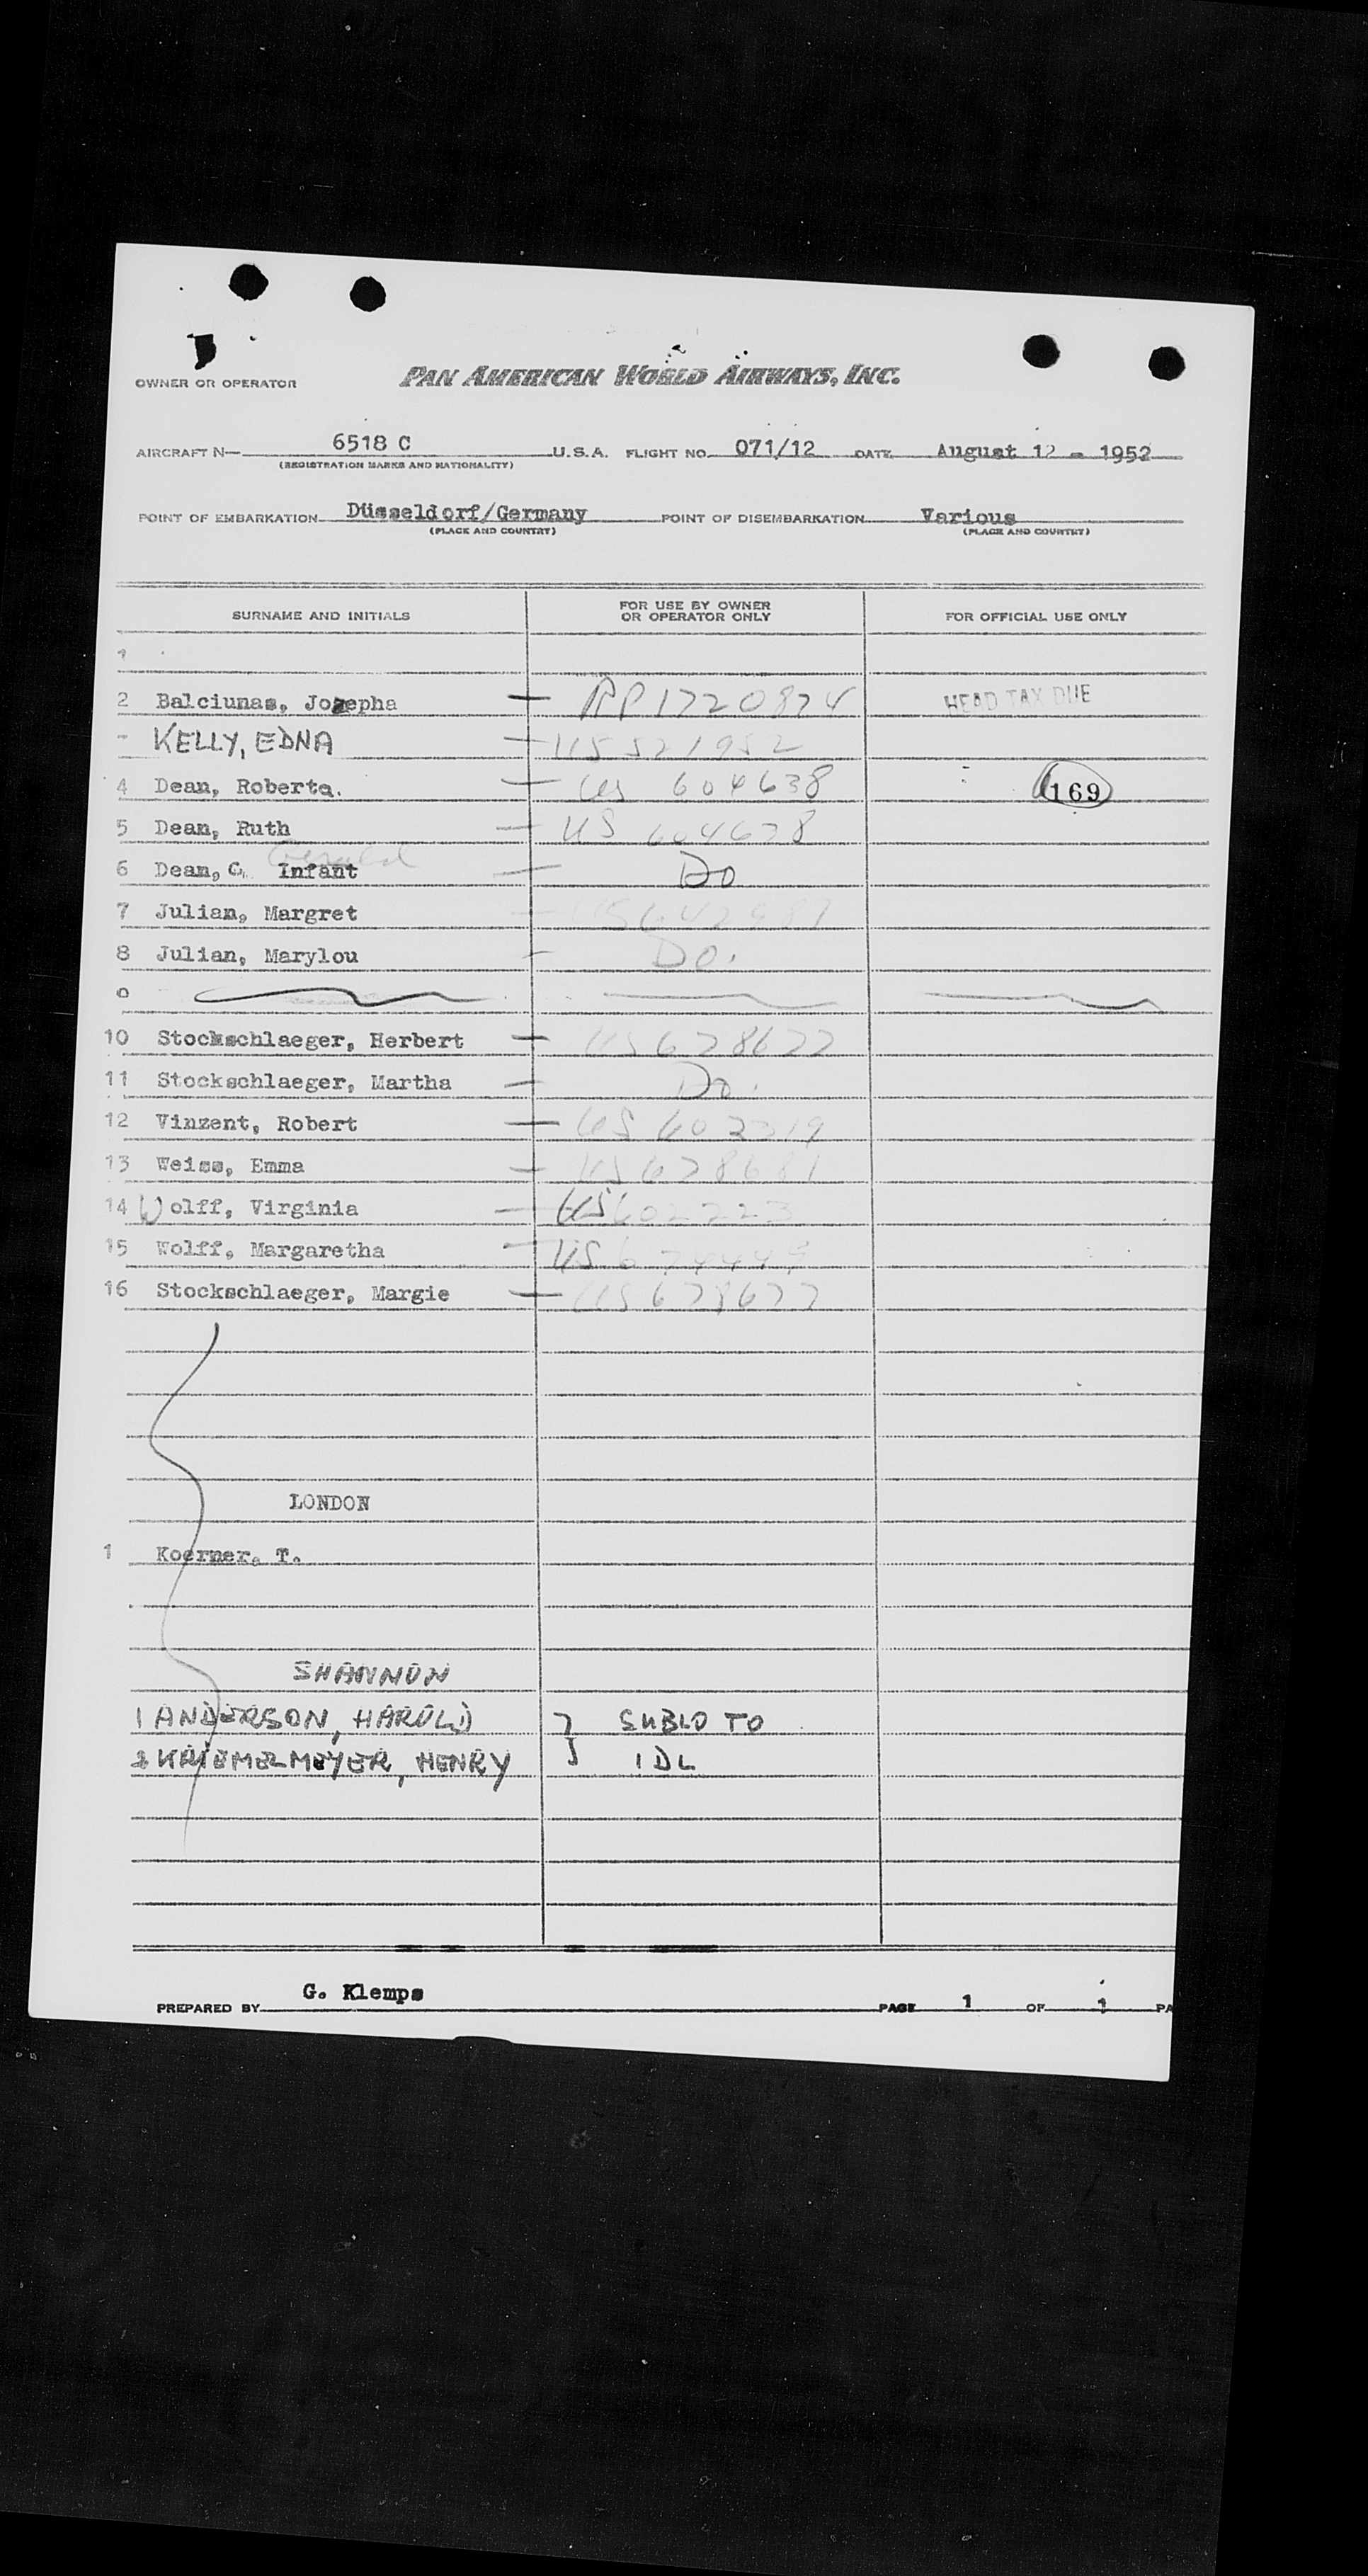 OWNER OR OPERATOR PAN AMERICAN WORLD AIRWAYS, INC.
AIRCRAFT N— 6518 C U.S.A. FLIGHT NO. 071/12 DATE August 12 - 1952
(REGISTRATION MARKS AND NATIONALITY)
POINT OF EMBARKATION Düsseldorf/Germany POINT OF DISEMBARKATION Various
(PLACE AND COUNTRY) (PLACE AND COUNTRY)
SURNAME AND INITIALS FOR USE BY OWNER OR OPERATOR ONLY FOR OFFICIAL USE ONLY
1
2 Balciunas, Jozepha — RP1720874 HEAD TAX DUE
KELLY, EDNA — US 521952
4 Dean, Roberta. — US 604638 169
5 Dean, Ruth — US 604638
6 Dean, G. Infant Gerald — Do
7 Julian, Margret —
8 Julian, Marylou — Do.
10 Stockschlaeger, Herbert — US 678677
11 Stockschlaeger, Martha — Do.
12 Vinzent, Robert — US
13 Weiss, Emma — US 678681
14 Wolff, Virginia — US 602223
15 Wolff, Margaretha — US
16 Stockschlaeger, Margie — US 678677
LONDON
1 Koerner, T.
SHANNON
1 ANDERSON, HAROLD } SUBLO TO
2 KRIEMELMEYER, HENRY } IDL
PREPARED BY G. Klemps PAGE 1 OF 1 PA